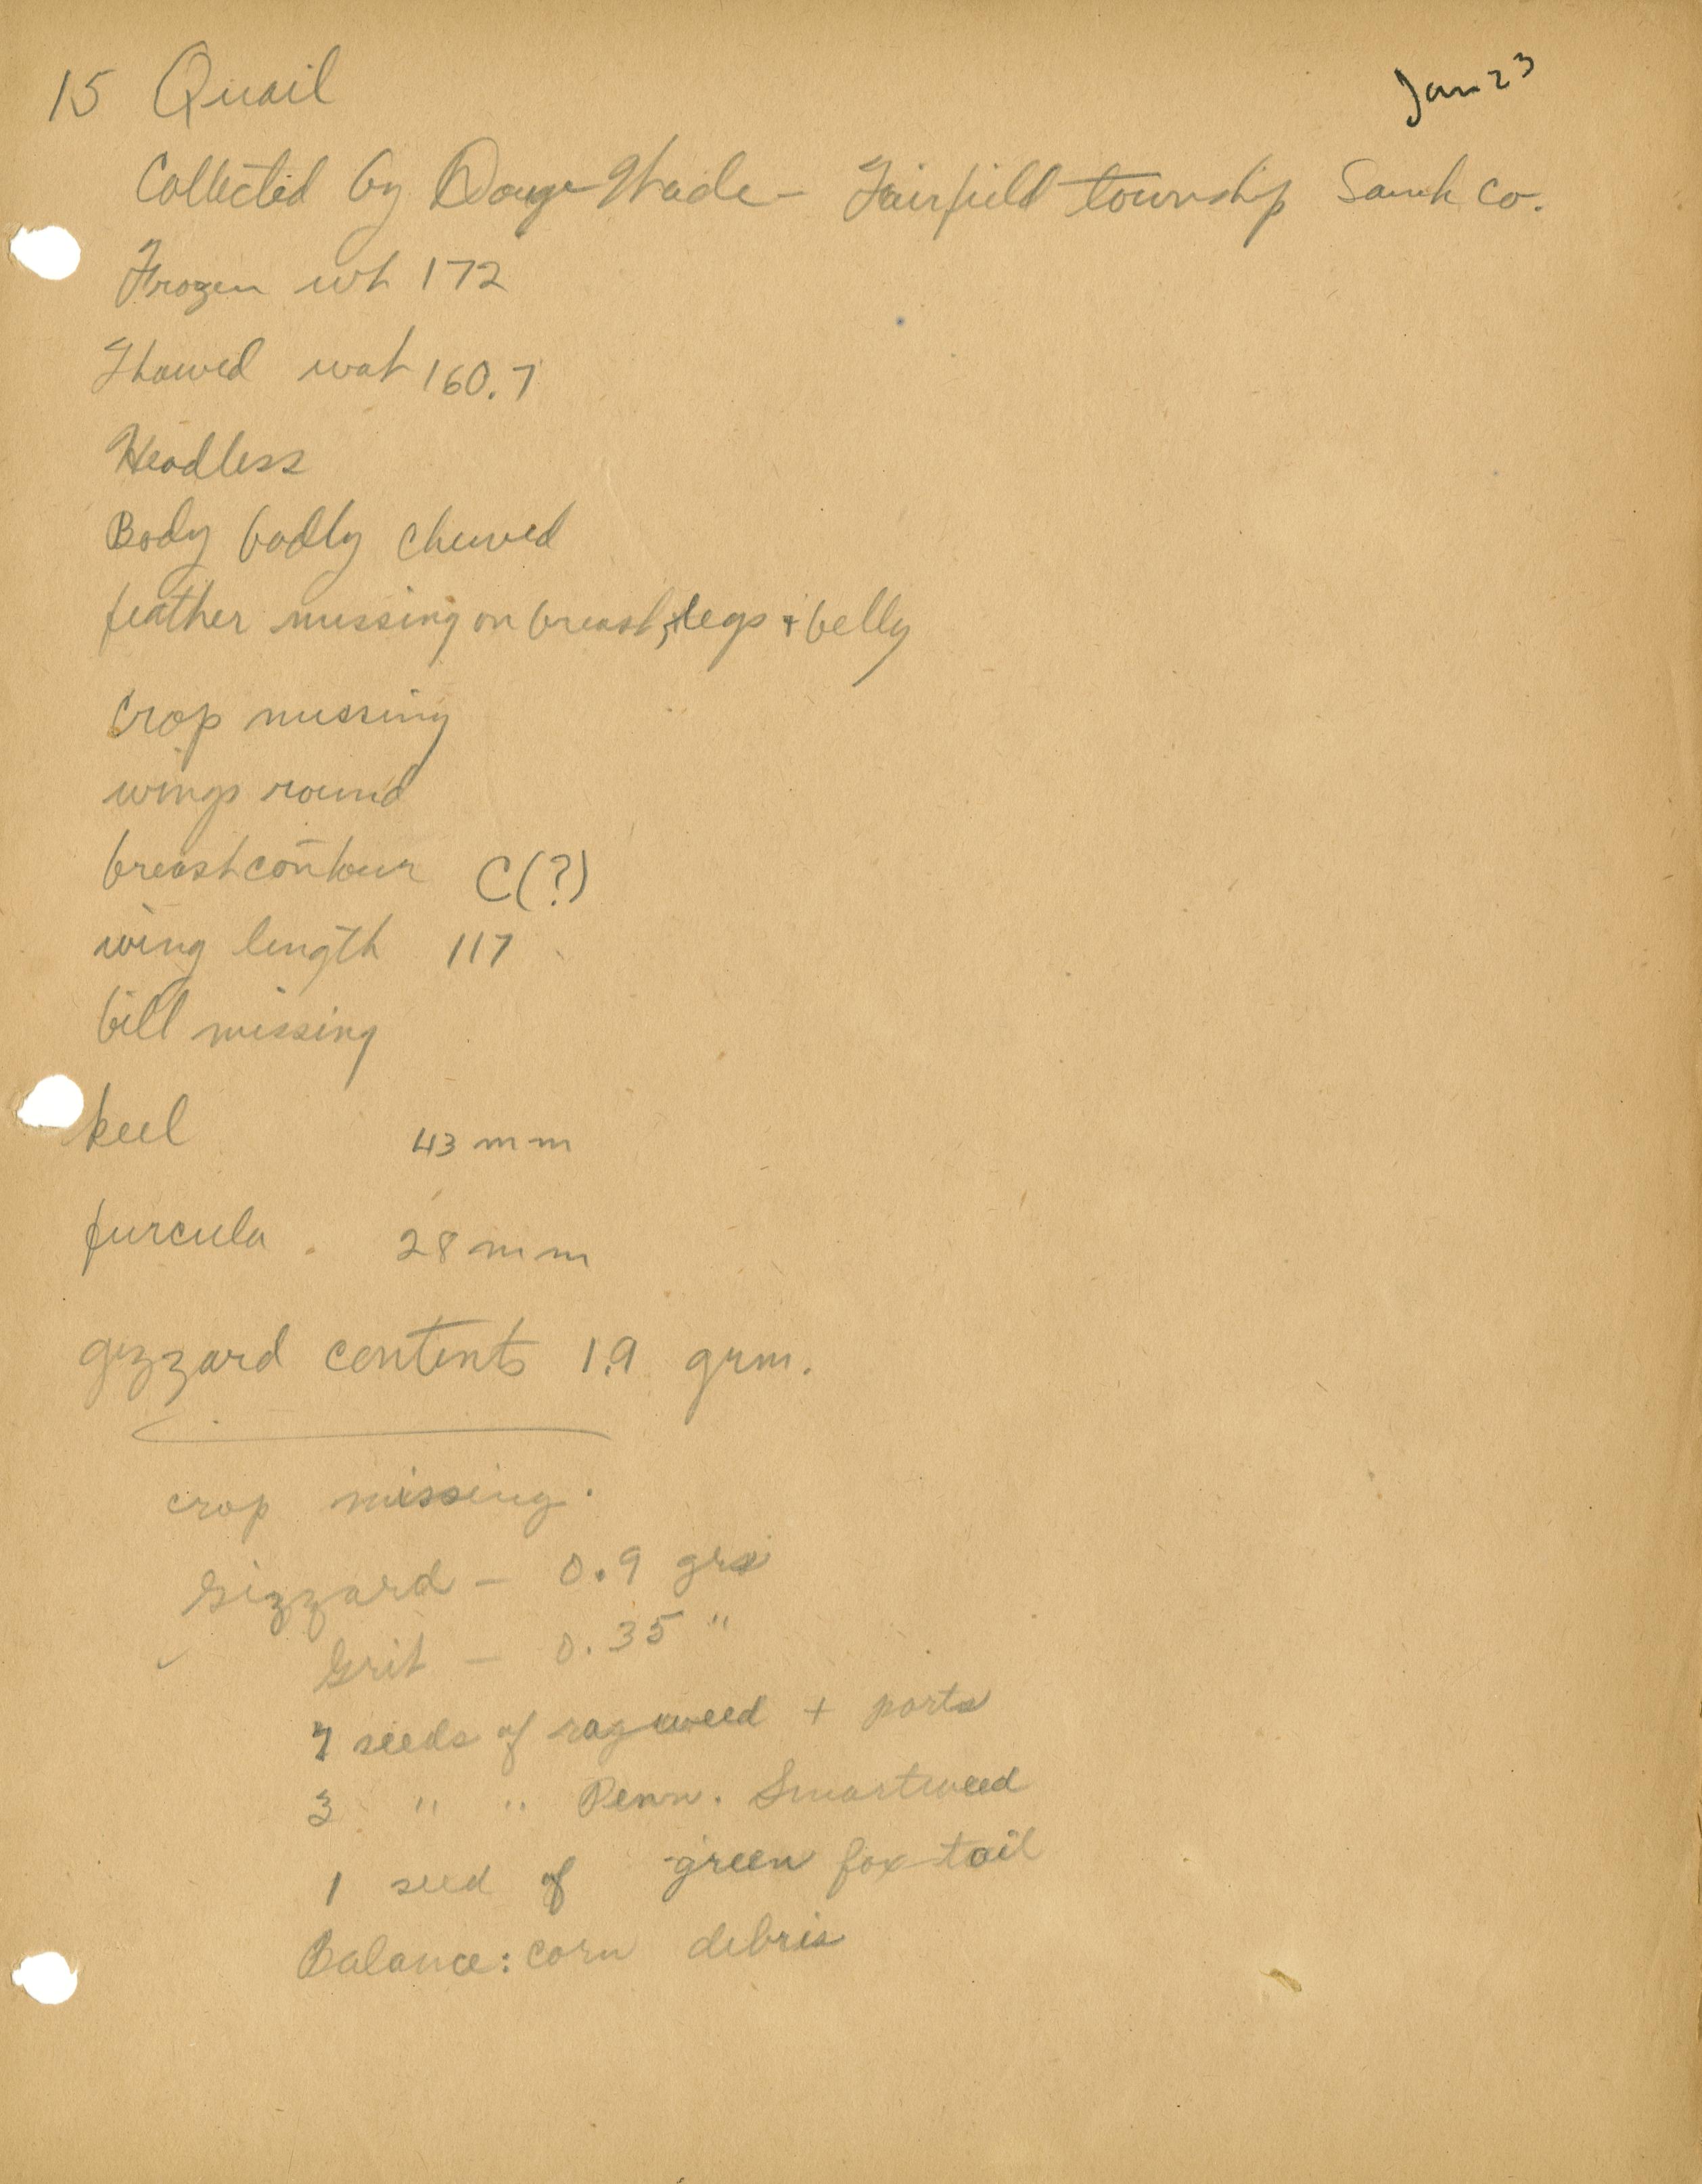 15 Quail
Jan 23
Collected by Doug Wade - Fairfield township Sauk Co.
Frozen wt 172
Thawed wat 160.7
Headless
Body badly chewed
feather missing on breast, legs + belly
Crop missing
wings round
breast contour C(?)
wing length 117
bill missing
keel 43 mm
furcula. 28 mm
gizzard contents 1.9 grm.
crop missing.
Gizzard - 0.9 grs
Grit - 0.35 "
7 seeds of ragweed + parts
3 " " Penn. Smartweed
1 seed of green foxtail
Balance: corn debris